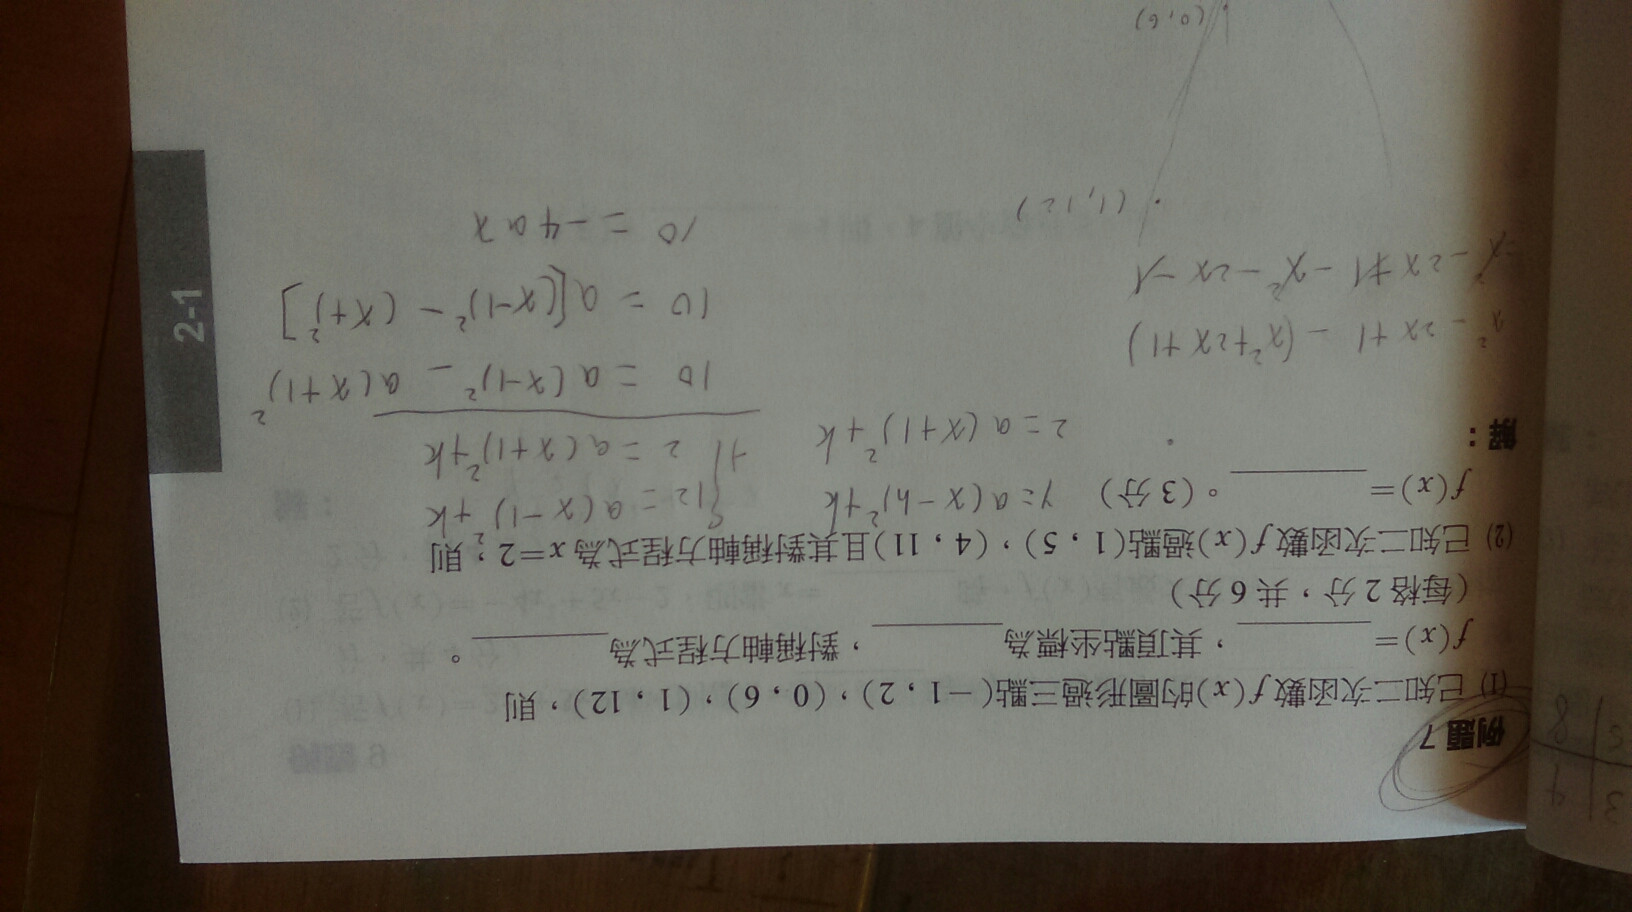 例題 7
(1) 已知二次函數 f(x)的圖形過三點(-1,2),(0,6),(1,12),則
f(x)=________,其頂點坐標為________,對稱軸方程式為________。
(每格 2 分,共 6 分)
(2) 已知二次函數 f(x)過點(1,5),(4,11)且其對稱軸方程式為 x=2,則
f(x)=________。(3 分)
解:
y=a(x-h)²+k
2=a(x+1)²+k
12=a(x-1)²+k
2=a(x+1)²+k
10=a(x-1)²-a(x+1)²
10=a[(x-1)²-(x+)²]
10=-4ax
x²-2x+1-(x²+2x+1)
=x²-2x+1-x²-2x-1
(1,12)
(0,6)
2-1
3 4
8